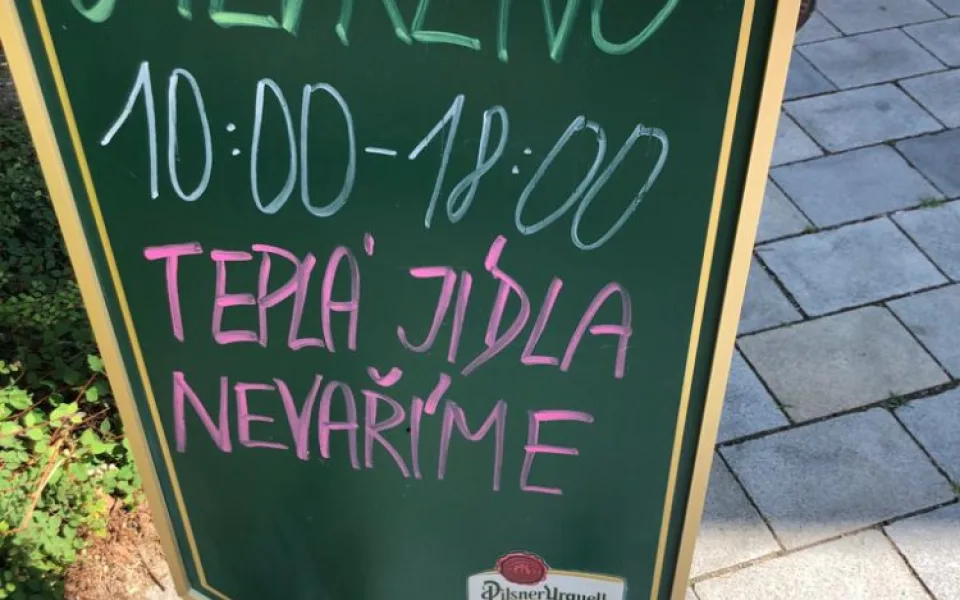 OTEVŘENO
10:00-18:00
TEPLÁ JÍDLA
NEVAŘÍME
Pilsner Urquell